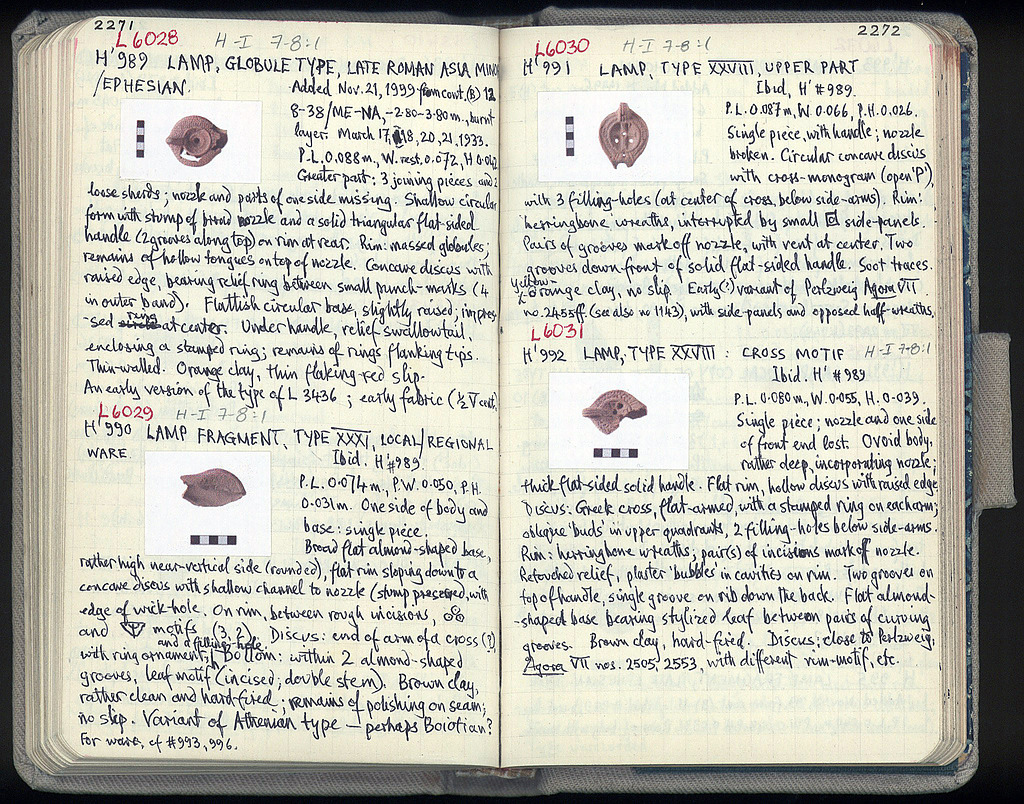 2271
L6028 H-I 7-8:1
H'989 LAMP, GLOBULE TYPE, LATE ROMAN ASIA MINOR
/EPHESIAN.
Added Nov. 21, 1999 from cont. (B) 12
8-38/ME-NA, -2.80-3.80m., burnt
layer. March 17, 18, 20, 21. 1933.
P.L. 0.088m., W. rest. 0.072, H 0.042
Greater part: 3 joining pieces and 2
loose sherds; nozzle and parts of one side missing. Shallow circular
form with stump of broad nozzle and a solid triangular flat-sided
handle (2 grooves along top) on rim at rear. Rim: massed globules;
remains of hollow tongues on top of nozzle. Concave discus with
raised edge, bearing relief ring between small punch-marks (4
in outer band). Flattish circular base, slightly raised; impres-
sed circle ring at center. Under handle, relief swallowtail,
enclosing a stamped ring; remains of rings flanking tips.
Thin-walled. Orange clay, thin flaking red slip.
An early version of the type of L 3436; early fabric (½ V cent.)
L6029 H-I 7-8:1
H'990 LAMP FRAGMENT, TYPE XXXI, LOCAL/REGIONAL
WARE.
Ibid. H'#989.
P.L. 0.074m., P.W. 0.050, P.H.
0.031m. One side of body and
base: single piece.
Broad flat almond-shaped base,
rather high near-vertical side (rounded), flat rim sloping down to a
concave discus with shallow channel to nozzle (stump preserved, with
edge of wick-hole. On rim, between rough incisions,
and motifs (3, 2). Discus: end of arm of a cross (?),
with ring ornament, and a filling-hole. Bottom: within 2 almond-shaped
grooves, leaf motif (incised; double stem). Brown clay,
rather clean and hard-fired; remains of polishing on seam;
no slip. Variant of Athenian type — perhaps Boiotian?
For ware, cf #993, 996.
2272
L6030 H-I 7-8:1
H'991 LAMP, TYPE XXVIII, UPPER PART
Ibid, H'#989.
P.L. 0.087m, W. 0.066, P.H. 0.026.
Single piece, with handle; nozzle
broken. Circular concave discus
with cross-monogram (open 'P'),
with 3 filling-holes (at center of cross, below side-arms). Rim:
herringbone wreaths, interrupted by small side-panels.
Pairs of grooves mark off nozzle, with vent at center. Two
grooves down front of solid flat-sided handle. Soot traces.
Yellow-orange clay, no slip. Early(?) variant of Perlzweig Agora VII
no. 2455ff (see also no 1143), with side-panels and opposed half-wreaths.
L6031
H'992 LAMP, TYPE XXVIII: CROSS MOTIF H-I 7-8:1
Ibid. H'#989
P.L. 0.080m., W. 0.055, H. 0.039.
Single piece; nozzle and one side
of front end lost. Ovoid body,
rather deep, incorporating nozzle;
thick flat-sided solid handle. Flat rim, hollow discus with raised edge
Discus: Greek cross, flat-armed, with a stamped ring on each arm;
oblique 'buds' in upper quadrants, 2 filling-holes below side-arms.
Rim: herringbone wreaths; pair(s) of incisions mark off nozzle.
Retouched relief, plaster 'bubbles' in cavities on rim. Two grooves on
top of handle, single groove on rib down the back. Flat almond-
shaped base bearing stylized leaf between pairs of curving
grooves. Brown clay, hard-fired. Discus: close to Perlzweig,
Agora VII nos. 2505, 2553, with different rim-motif, etc.